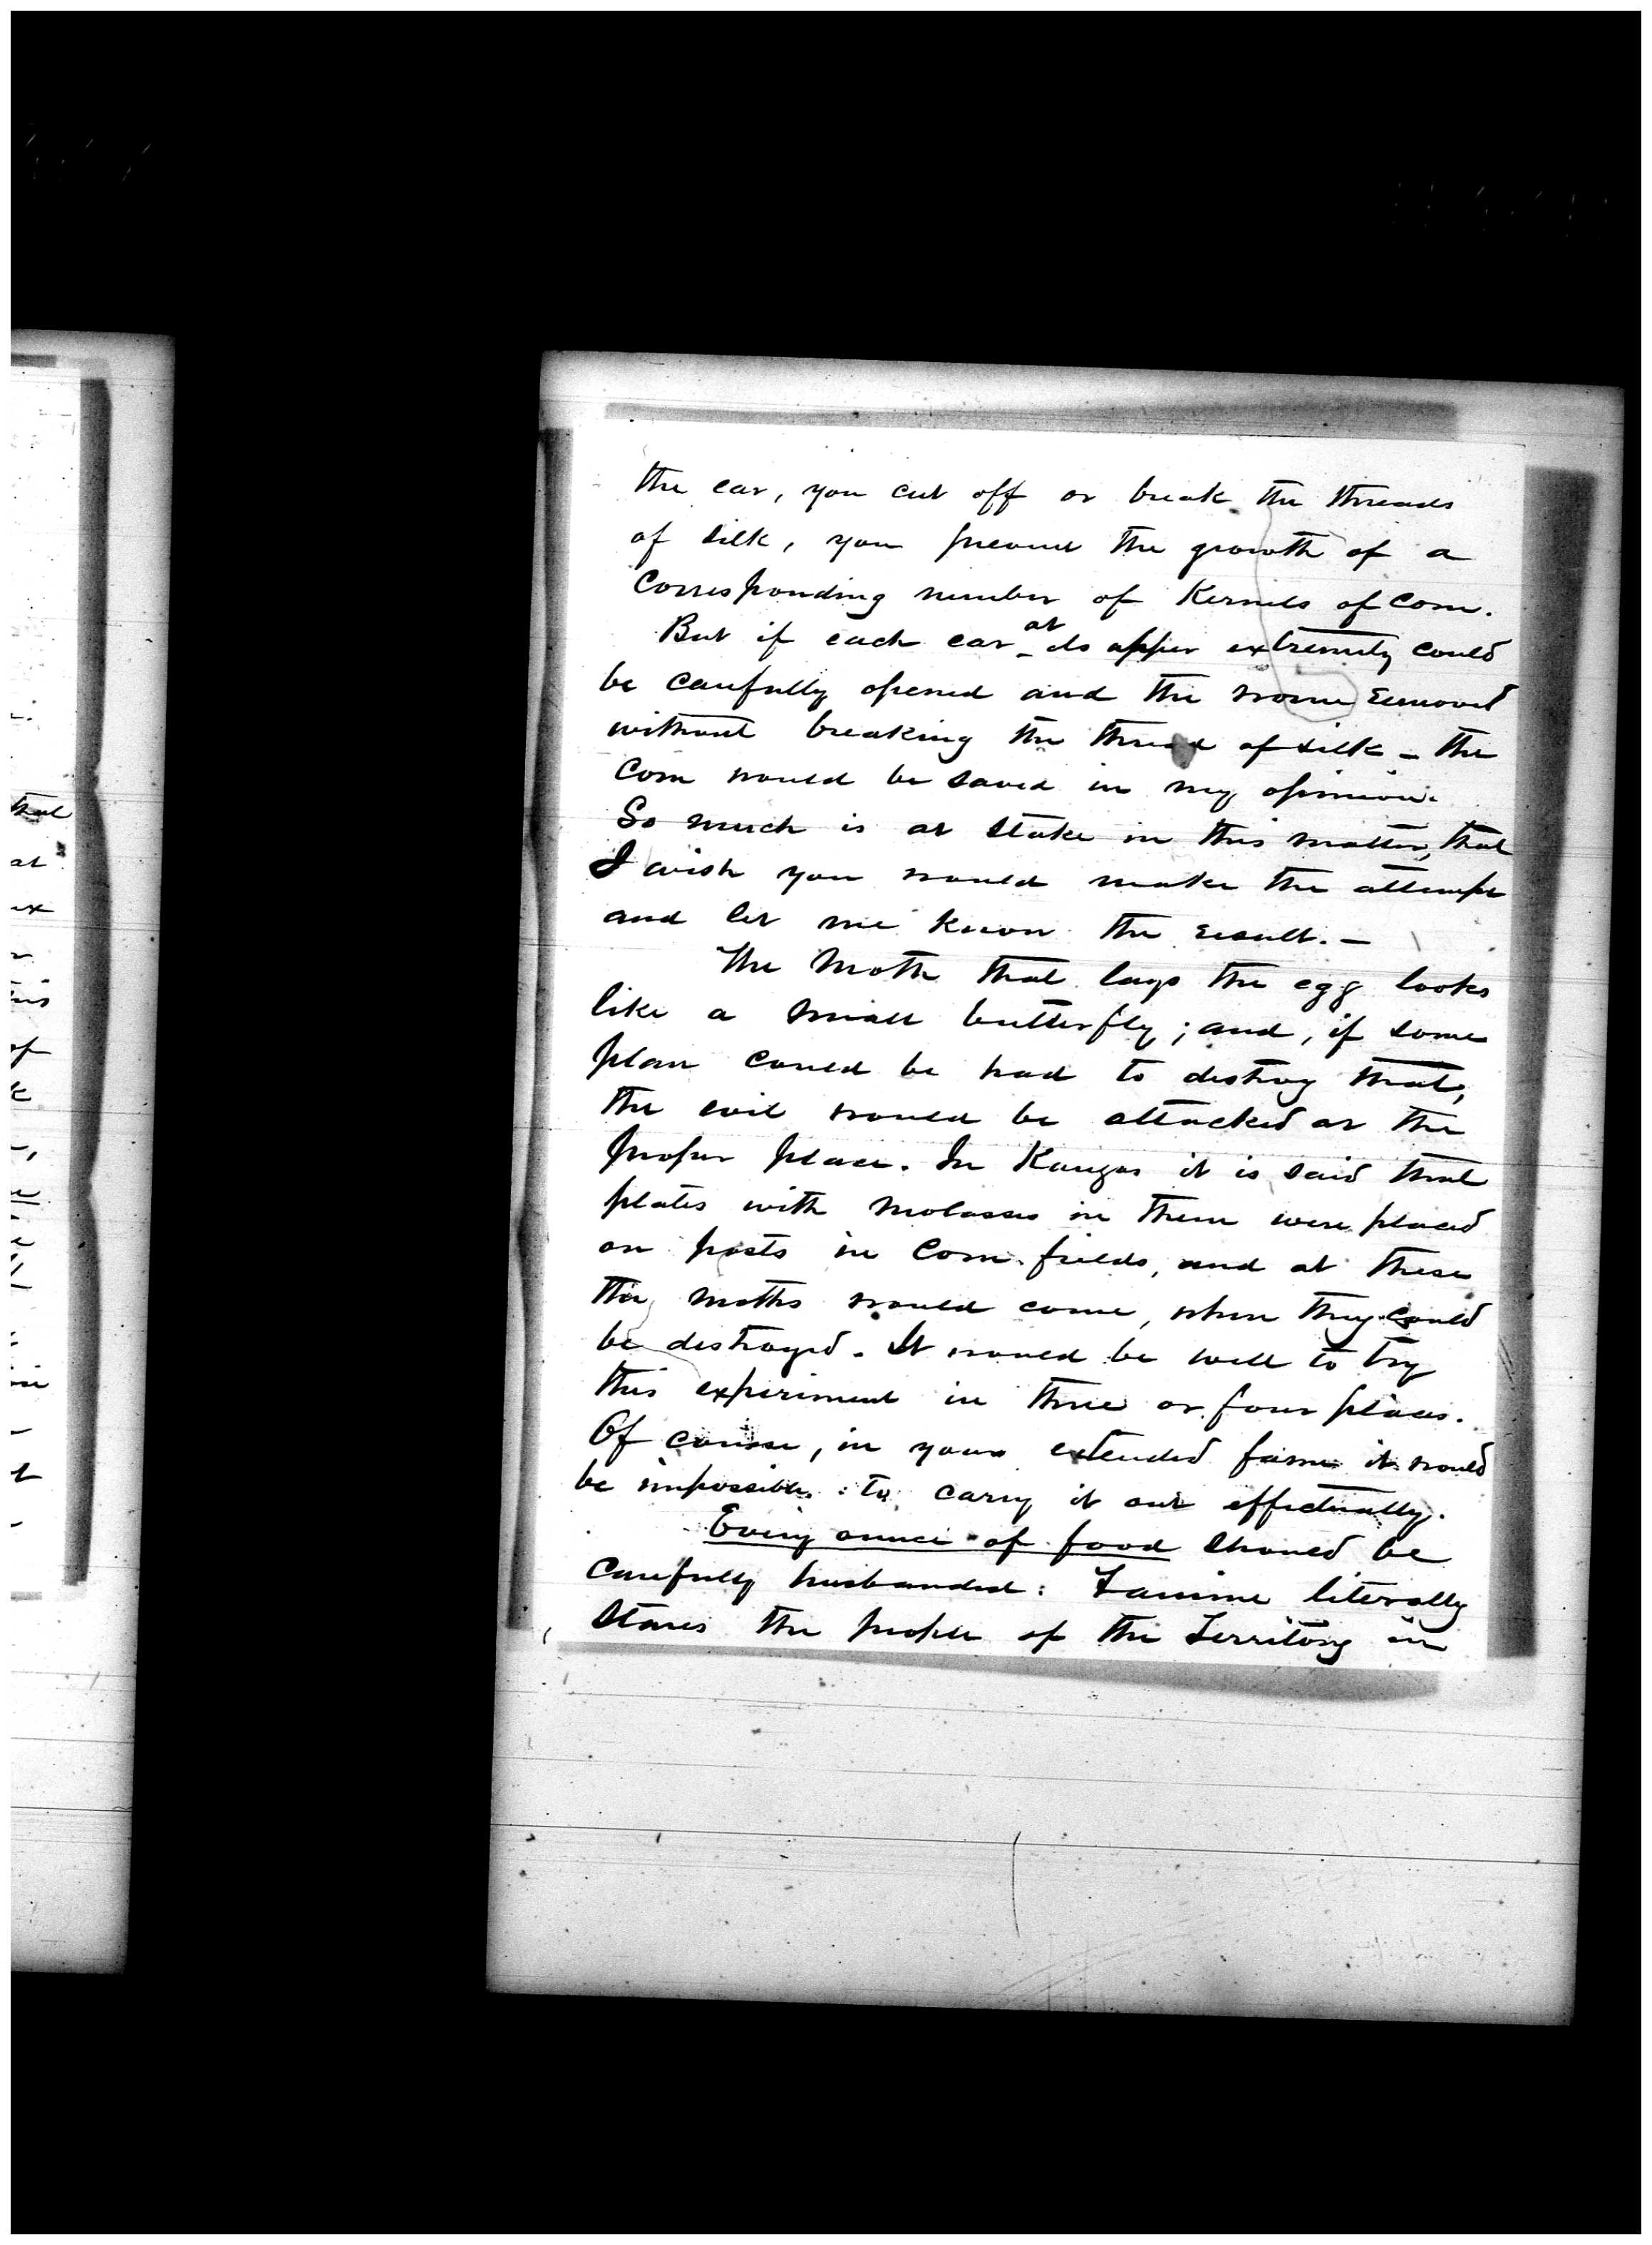 the ear, you cut off or break the threads
of silk, you prevent the growth of a
corresponding number of Kernels of corn.
But if each ear at its upper extremity could
be carefully opened and the worm removed
without breaking the thread of silk – the
corn would be saved in my opinion.
So much is at stake in this matter, that
I wish you would make the attempt
and let me know the result. –
The Moth that lays the egg looks
like a small butterfly; and, if some
plan could be had to destroy that,
the evil would be attacked at the
proper place. In Kanzas it is said that
plates with molasses in them were placed
on posts in Corn fields, and at these
the moths would come, when they could
be destroyed. It would be well to try
this experiment in three or four places.
Of course, in your extended farm it would
be impossible to carry it out effectually.
Every ounce of food should be
carefully husbanded: Famine literally
stares the people of the Territory in
that
at
of